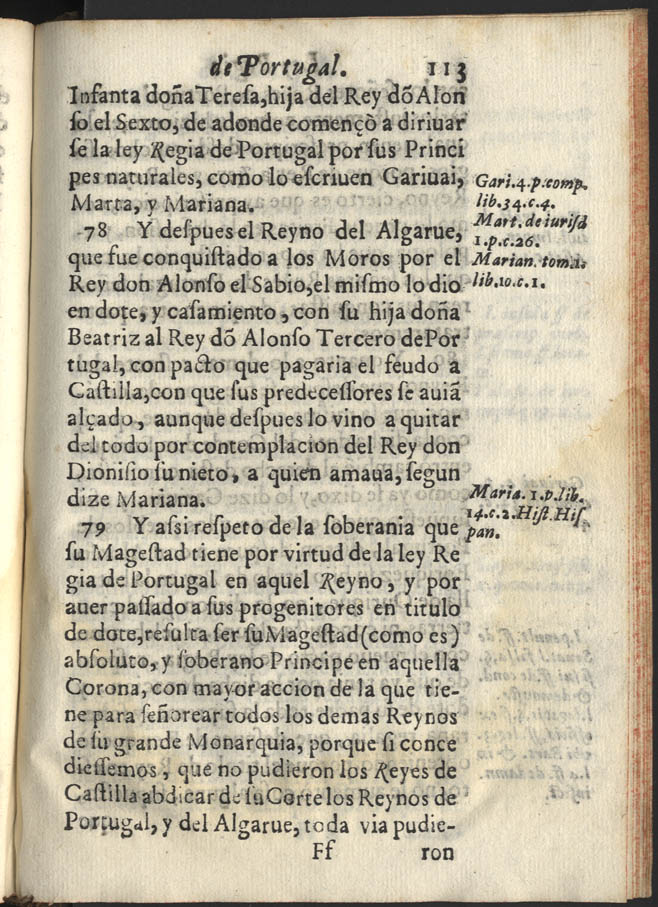 de Portugal. 113
Infanta doña Teresa, hija del Rey dõ Alon
ſo el Sexto, de adonde començò a diriuar
ſe la ley Regia de Portugal por ſus Princi
pes naturales, como lo eſcriuen Gariuai,
Marta, y Mariana.
Gari.4.p.comp.
lib.34.c.4.
Mart. de iuriſd
1.p.c.26.
Marian. tom.1.
lib.10.c.1.
78 Y deſpues el Reyno del Algarue,
que fue conquiſtado a los Moros por el
Rey don Alonſo el Sabio, el miſmo lo dio
en dote, y caſamiento, con ſu hija doña
Beatriz al Rey dõ Alonſo Tercero de Por
tugal, con pacto que pagaria el feudo a
Caſtilla, con que ſus predeceſſores ſe auiã
alçado, aunque deſpues lo vino a quitar
del todo por contemplacion del Rey don
Dioniſio ſu nieto, a quien amaua, ſegun
dize Mariana.
Maria. 1.p.lib.
14.c.2.Hiſt.Hiſ
pan.
79 Y aſsi reſpeto de la ſoberania que
ſu Mageſtad tiene por virtud de la ley Re
gia de Portugal en aquel Reyno, y por
auer paſſado a ſus progenitores en titulo
de dote, reſulta ſer ſu Mageſtad (como es)
abſoluto, y ſoberano Principe en aquella
Corona, con mayor accion de la que tie-
ne para ſeñorear todos los demas Reynos
de ſu grande Monarquia, porque ſi conce
dieſſemos, que no pudieron los Reyes de
Caſtilla abdicar de ſu Corte los Reynos de
Portugal, y del Algarue, toda via pudie-
Ff ron